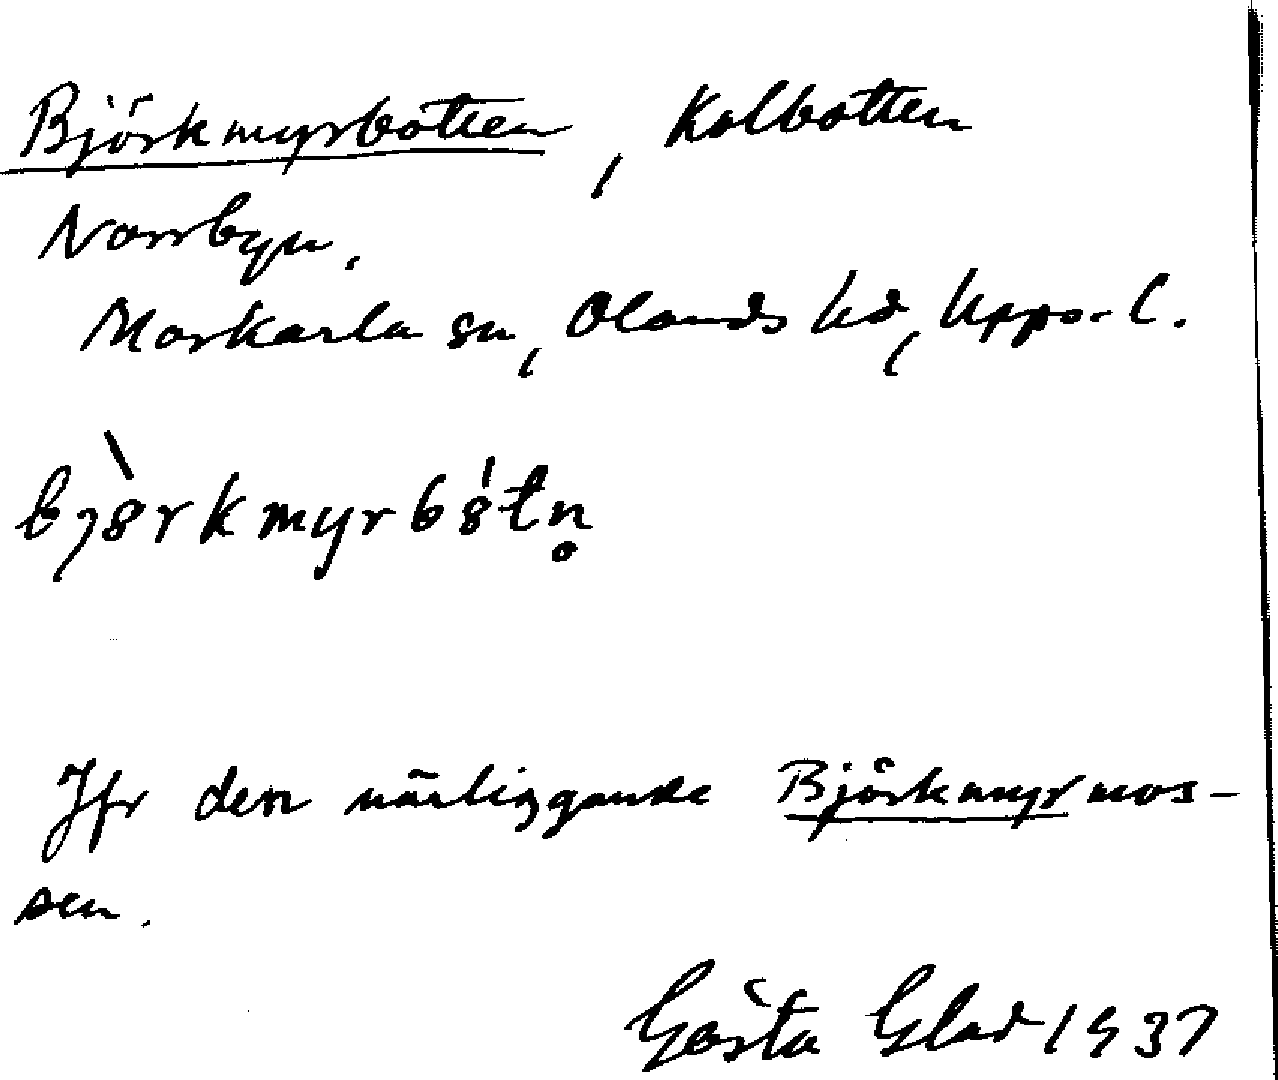 Björkmyrbotten, Kolbotten
Norrbyn,
Morkarla sn, Olands hd, Upps. l.
bjòrkmyrbótn̥
Jfr den närliggande Björkmyrmos-
sen.
Gösta Glad 1937